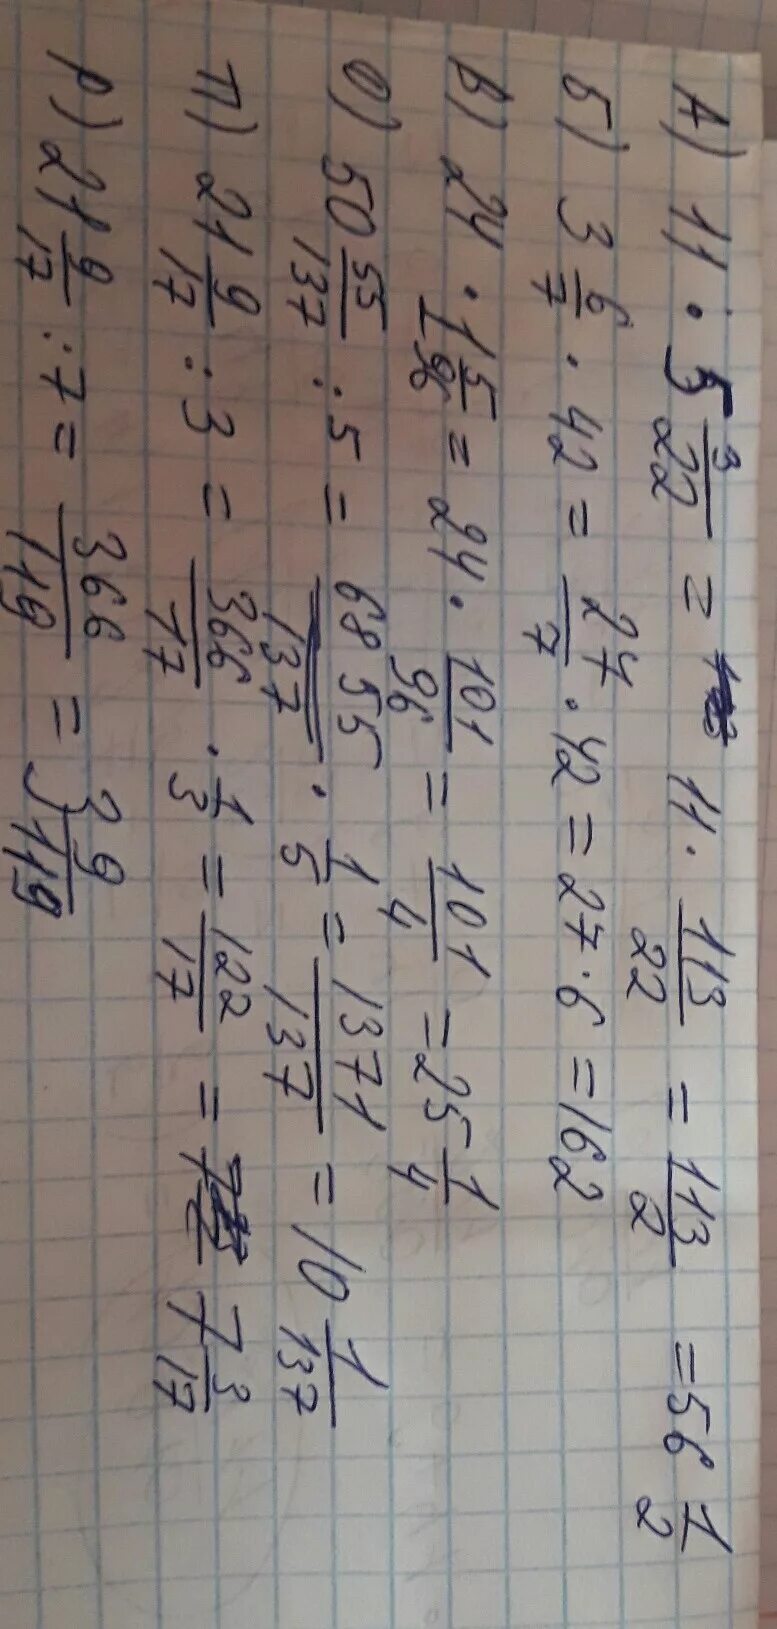 А) 11 · 5 3/22 = 11 · 113/22 = 113/2 = 56 1/2
Б) 3 6/7 · 42 = 27/7 · 42 = 27 · 6 = 162
В) 24 · 1 5/96 = 24 · 101/96 = 101/4 = 25 1/4
О) 50 55/137 : 5 = 6855/137 · 1/5 = 1371/137 = 10 1/137
П) 21 9/17 : 3 = 366/17 · 1/3 = 122/17 = 7 3/17
Р) 21 9/17 : 7 = 366/119 = 3 9/119